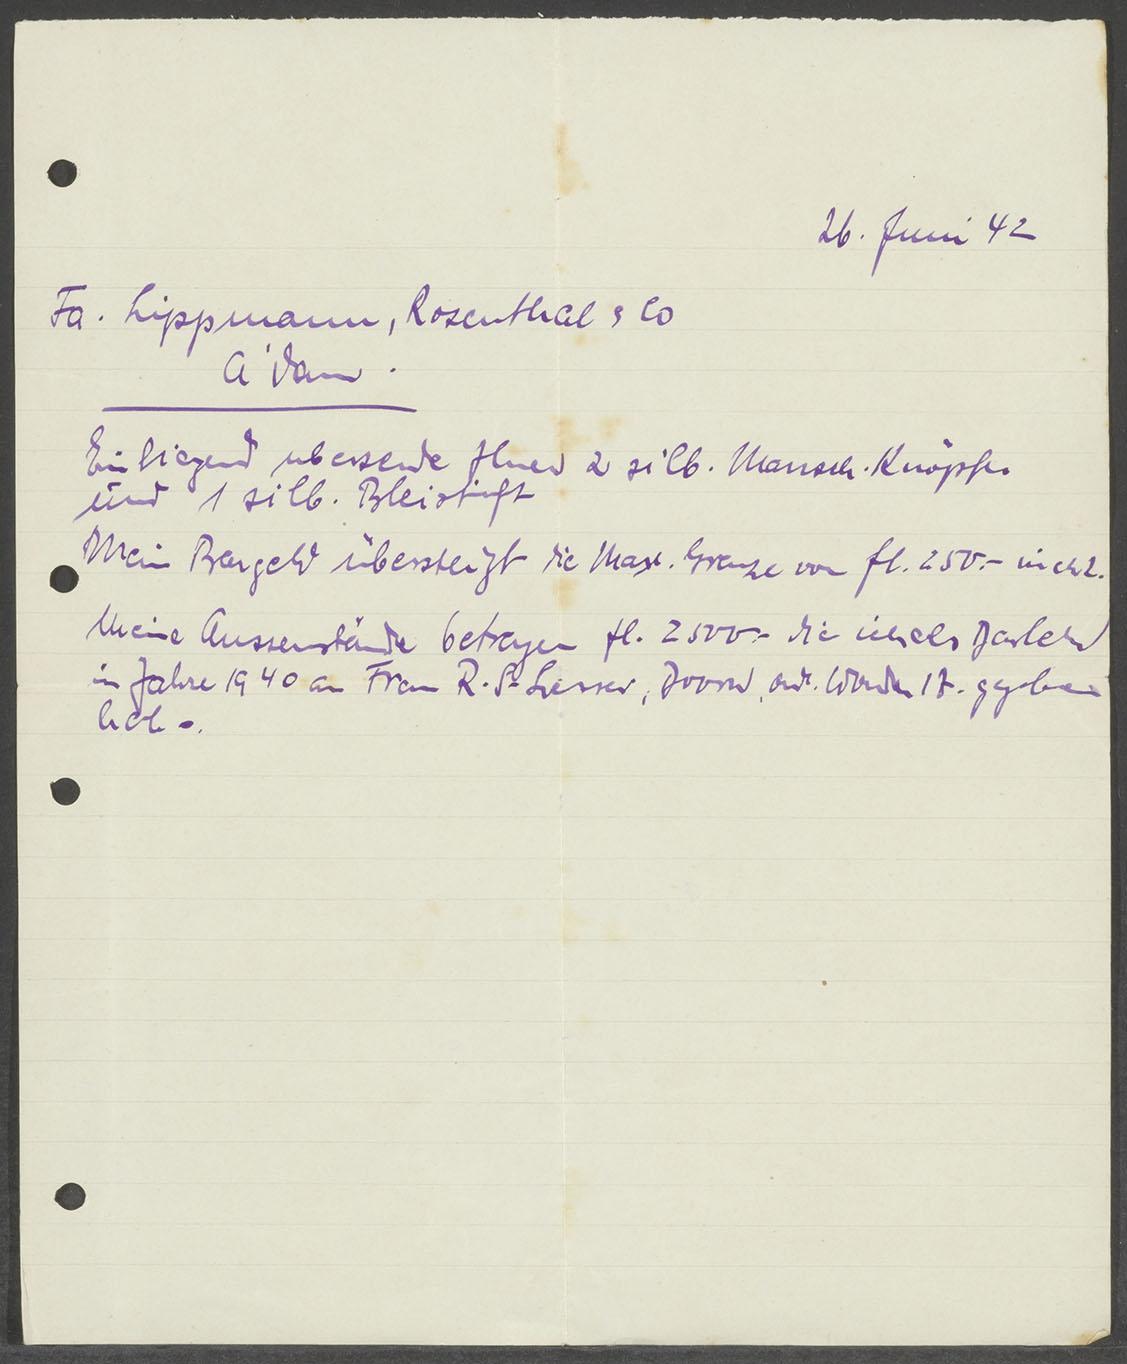 26. Juni 42
Fa. Lippmann, Rosenthal & Co
A'dam.
Einliegend übersende Ihnen 2 silb. Mansch. Knöpfe
und 1 silb. Bleistift
Mein Bargeld übersteigt die Max. Grenze von fl. 250.- nicht.
Meine Aussenstände betragen fl. 2500.- die ich als Darlehn
im Jahre 1940 an Frau R. S. Doorn, 17. gegeben
habe.